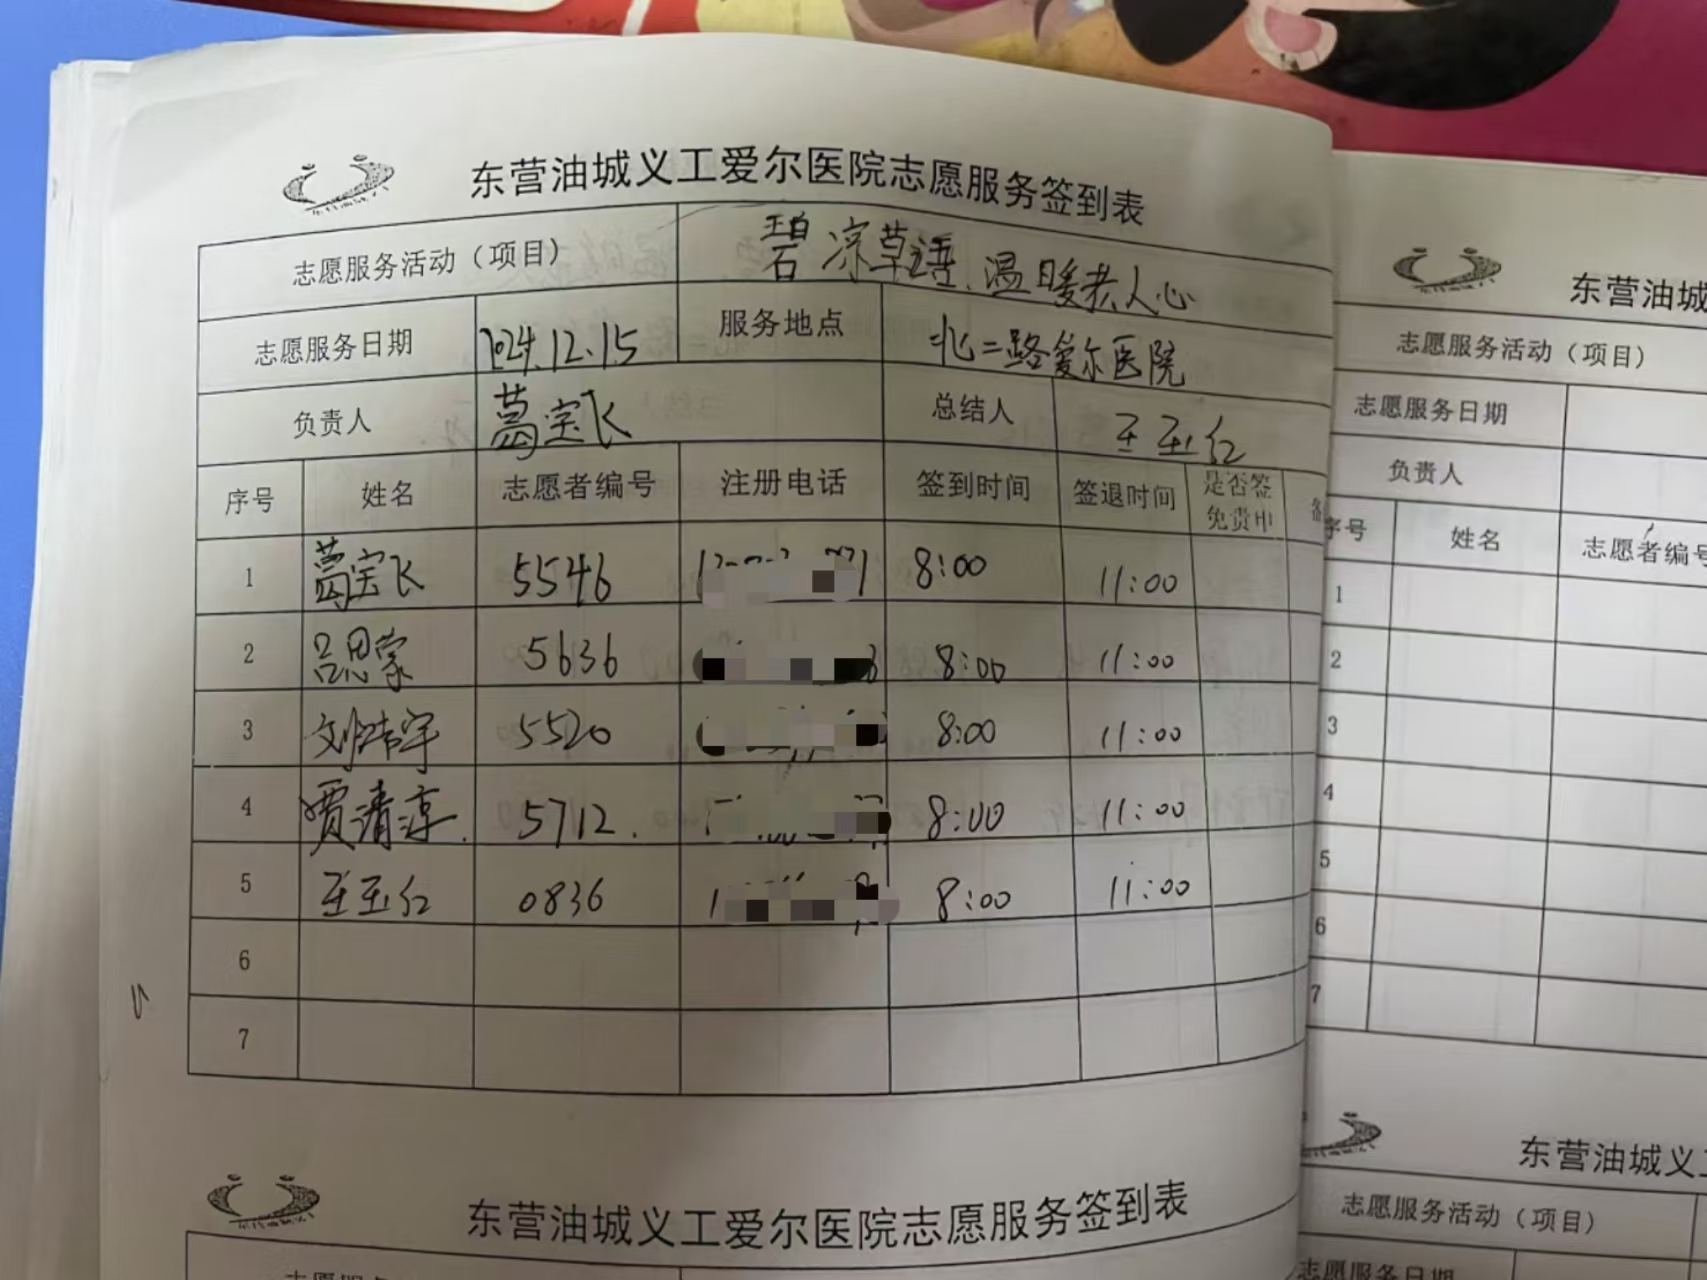 东营油城义工爱尔医院志愿服务签到表
志愿服务活动（项目） 碧凉草语.温暖老人心
志愿服务日期 2024.12.15 服务地点 北二路爱尔医院
负责人 葛宝飞 总结人 王玉红
序号 姓名 志愿者编号 注册电话 签到时间 签退时间 是否签免责申 备
1 葛宝飞 5546 8:00 11:00
2 吕思蒙 5636 8:00 11:00
3 5520 8:00 11:00
4 贾清淳. 5712. 8:00 11:00
5 王玉红 0836 8:00 11:00
6
7
东营油城义工爱尔医院志愿服务签到表
东营油城
志愿服务活动（项目）
志愿服务日期
负责人
序号 姓名 志愿者编号
1
2
3
4
5
6
7
东营油城义工
志愿服务活动（项目）
志愿服务日期